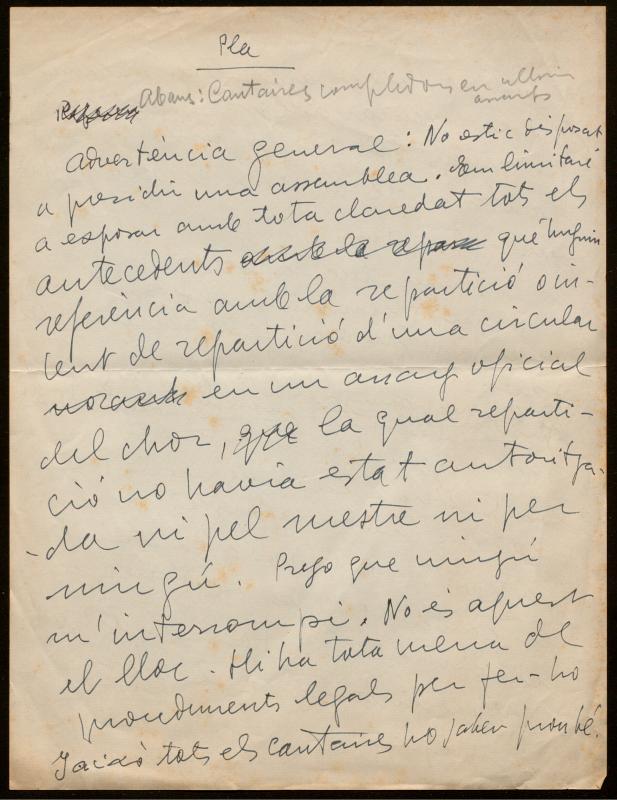 Pla
Abans: Cantaires complidors en
Advertència general: No estic disposat
a presidir una assemblea. Em limitaré
a exposar amb tota claredat tots els
antecedents què tinguin
referència amb la repartició o in-
tent de repartició d'una circular
en un assaig oficial
del chor, que la qual reparti-
ció no havia estat autoritza-
-da ni pel mestre ni per
ningú. Prego que ningú
m'interrompi. No és aquest
el lloc. Hi ha tota mena de
procediments legals per fer-ho
I això tots els cantaires ho saben prou bé.